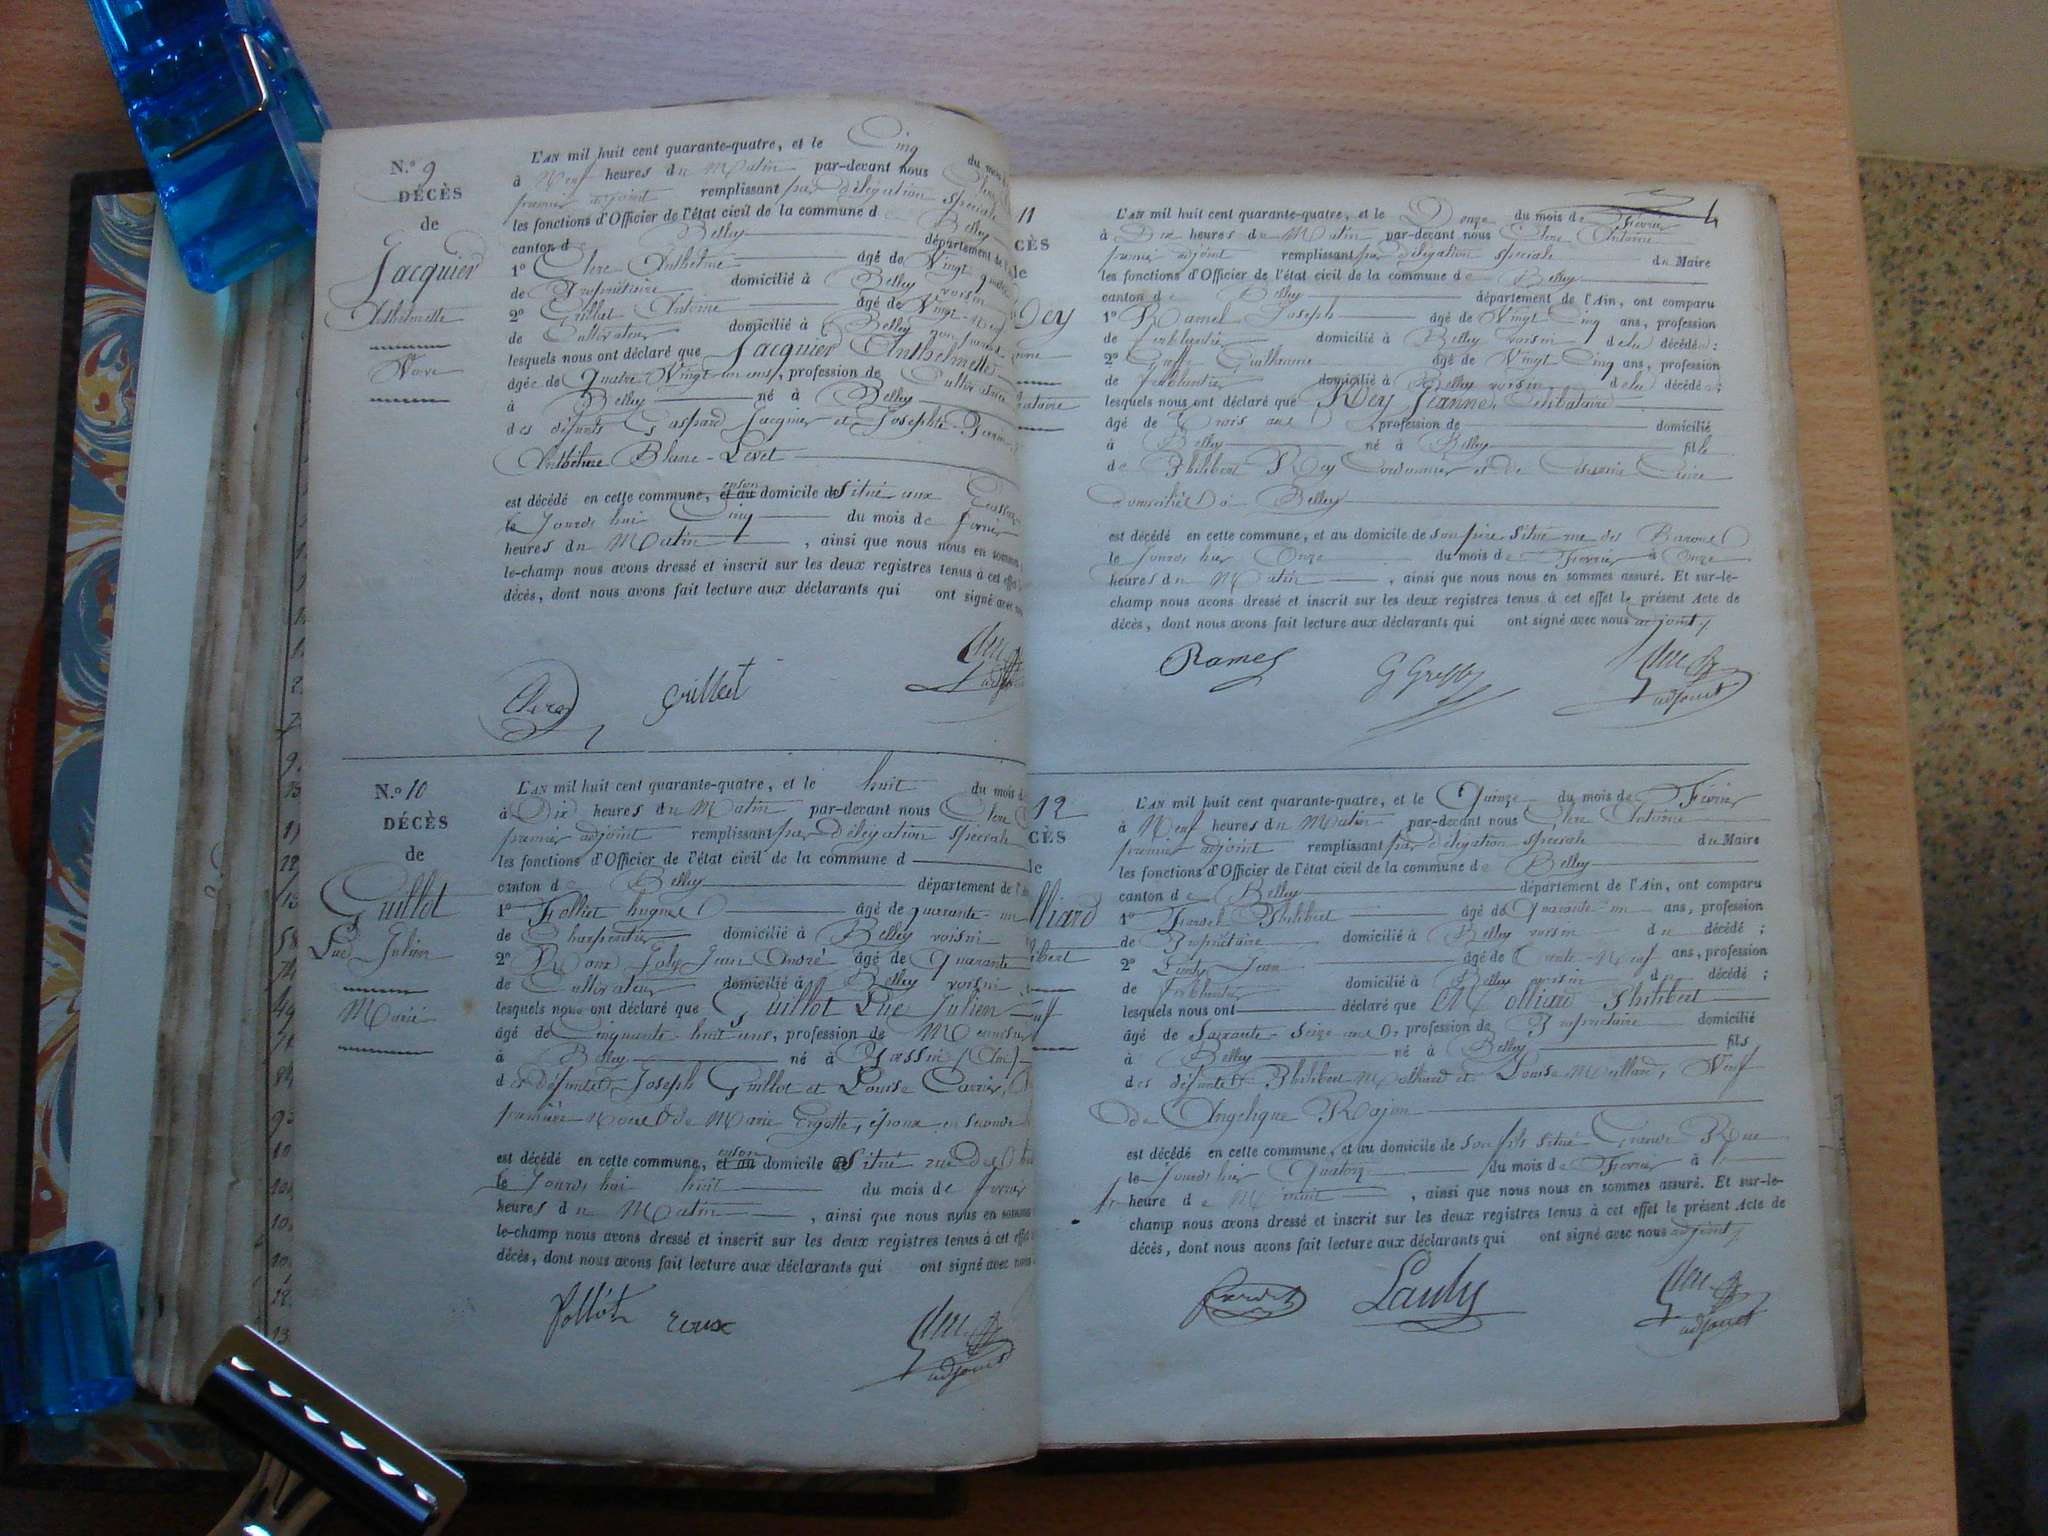 N.º 9
DÉCÈS
de
Jacquier
Anthelmette
Veuve
L'AN mil huit cent quarante-quatre, et le Cinq du mois
à Neuf heures du Matin par-devant nous Clerc
premier adjoint remplissant par délégation spéciale
les fonctions d'Officier de l'état civil de la commune de Belley
canton de Belley département de l'
1º Clerc Anthelme âgé de Vingt quatre
de Propriétaire domicilié à Belley voisin
2º Guillet Antoine âgé de Vingt-Neuf
de Cultivateur domicilié à Belley
lesquels nous ont déclaré que Jacquier Anthelmette
âgée de Quatre Vingt un ans, profession de Cultivatrice
à Belley né à Belley
des défunts Gaspard Jacquier et Josephte
Anthelme Blanc-Levet
est décédé en cette commune, et au enson domicile situé aux
le Jourdhui Cinq du mois de février
heures du Matin, ainsi que nous nous en sommes
le-champ nous avons dressé et inscrit sur les deux registres tenus à cet effet
décès, dont nous avons fait lecture aux déclarants qui ont signé avec
Clerc Guillet
adjoint
N.º 10
DÉCÈS
de
Guillot
Luc Julien
Marié
L'AN mil huit cent quarante-quatre, et le huit du mois d
à Dix heures du Matin par-devant nous Clerc
premier adjoint remplissant par délégation spéciale
les fonctions d'Officier de l'état civil de la commune d
canton de Belley département de l'
1º Folliet hugues âgé de quarante-un
de Charpentier domicilié à Belley voisin
2º Roux Joly Jean André âgé de Quarante
de Cultivateur domicilié à Belley voisin
lesquels nous ont déclaré que Guillot Luc Julien
âgé de Cinquante-huit ans, profession de Menuisier
à Belley né à (Ain)
des défunts Joseph Guillot et Louise Carrier,
première Noce de Marie Ergotte, époux en seconde
est décédé en cette commune, et au enson domicile situé rue des
le Jourdhui huit du mois de février
heures du Matin, ainsi que nous nous en sommes
le-champ nous avons dressé et inscrit sur les deux registres tenus à cet effet
décès, dont nous avons fait lecture aux déclarants qui ont signé avec nous
folliet roux
adjoint
4
11
CÈS
de
Rey
L'AN mil huit cent quarante-quatre, et le Douze du mois de Février
à Dix heures du Matin par-devant nous Clerc Antoine
premier adjoint remplissant par délégation spéciale du Maire
les fonctions d'Officier de l'état civil de la commune de Belley
canton de Belley département de l'Ain, ont comparu
1º Ramel Joseph âgé de Vingt Cinq ans, profession
de ferblantier domicilié à Belley voisin dela décédée;
2º Guillaume âgé de Vingt Cinq ans, profession
de ferblantier domicilié à Belley voisin dela décédée;
lesquels nous ont déclaré que Rey Jeanne, Célibataire
âgé de Trois ans profession de domicilié
à Belley né à Belley fille
de Philibert Rey Cordonnier et de Claire
domiciliés à Belley
est décédé en cette commune, et au domicile de son père situé rue des Barons
le Jourdhier Onze du mois de Février à Onze
heures du Matin, ainsi que nous nous en sommes assuré. Et sur-le-
champ nous avons dressé et inscrit sur les deux registres tenus à cet effet le présent Acte de
décès, dont nous avons fait lecture aux déclarants qui ont signé avec nous adjoint
Ramel
adjoint
12
CÈS
de
lliard
ibert
uf
L'AN mil huit cent quarante-quatre, et le Quinze du mois de Février
à Neuf heures du Matin par-devant nous Clerc Antoine
premier adjoint remplissant par délégation spéciale du Maire
les fonctions d'Officier de l'état civil de la commune de Belley
canton de Belley département de l'Ain, ont comparu
1º Philibert âgé de Quarante-un ans, profession
de Propriétaire domicilié à Belley voisin du décédé;
2º Lauly Jean âgé de Trente-Neuf ans, profession
de ferblantier domicilié à Belley voisin du décédé;
lesquels nous ont déclaré que Molliard Philibert
âgé de Soixante-Seize ans, profession de Propriétaire domicilié
à Belley né à Belley fils
des défunts Philibert Molliard et Louise Maillard, Veuf
de Angelique Rajon
est décédé en cette commune, et au domicile de son fils situé Grande Rue
le Jourdhier Quatorze du mois de Février à
heure de Minuit, ainsi que nous nous en sommes assuré. Et sur-le-
champ nous avons dressé et inscrit sur les deux registres tenus à cet effet le présent Acte de
décès, dont nous avons fait lecture aux déclarants qui ont signé avec nous adjoint
Lauly
adjoint